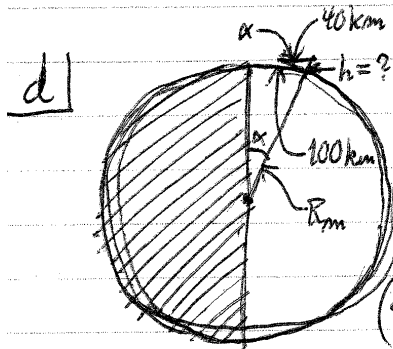 α 40km
d
h=?
α
100km
Rm